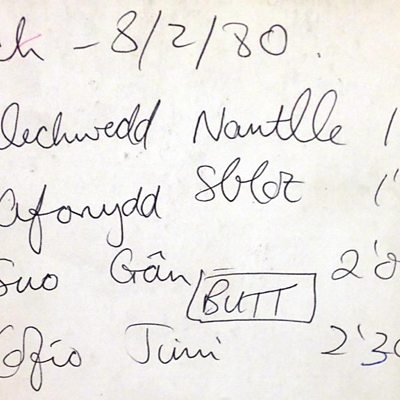 ch - 8/2/80.
lechwedd Nantlle 1
Afonydd 8bboz 1'
Suo Gân - 2'8
BUTT
Cofio Jimi 2'30